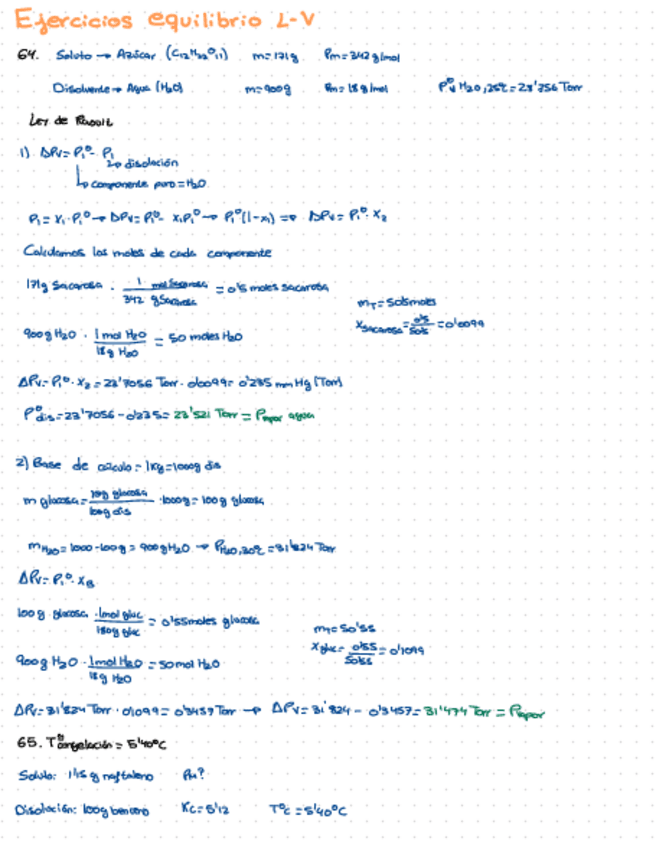 Ejercicios equilibrio L-V
64. Soluto → Azúcar (C12H22O11) m=171g Pm=342 g/mol
Disolvente → Agua (H2O) m=900g Pm=18 g/mol PºV H2O,25ºC=23'756 Torr
Ley de Raoult
1) ΔPV=P1º-P1
↳ disolución
↳ componente puro=H2O
P1=X1·P1º → ΔPV=P1º-X1P1º → P1º(1-X1) => ΔPV=P1º·X2
Calculamos los moles de cada componente
171g Sacarosa · 1 mol Sacarosa / 342 g Sacarosa = 0'5 moles sacarosa
mT=50'5 moles
Xsacarosa=0'5/50'5=0'0099
900g H2O · 1 mol H2O / 18g H2O = 50 moles H2O
ΔPV=P1º·X2=23'7056 Torr·0'0099=0'235 mmHg (Torr)
Pºdis=23'7056-0'235=23'521 Torr=Pvapor agua
2) Base de cálculo=1Kg=1000g dis
m glucosa=10g glucosa/100g dis ·1000g=100g glucosa
mH2O=1000-100g=900gH2O → PH2O,30ºC=31'824 Torr
ΔPV=P1º·XB
100g glucosa · 1mol gluc/180g gluc = 0'55moles glucosa
mT=50'55
Xgluc=0'55/50'55=0'1099
900g H2O · 1mol H2O/18g H2O = 50mol H2O
ΔPV=31'824 Torr·0'1099=0'3457 Torr → ΔPV=31'824-0'3457=31'474 Torr=Pvapor
65. Tºcongelación=5'40ºC
Soluto: 1'15 g naftaleno Pm?
Disolución: 100g benceno Kc=5'12 Tºc=5'40ºC